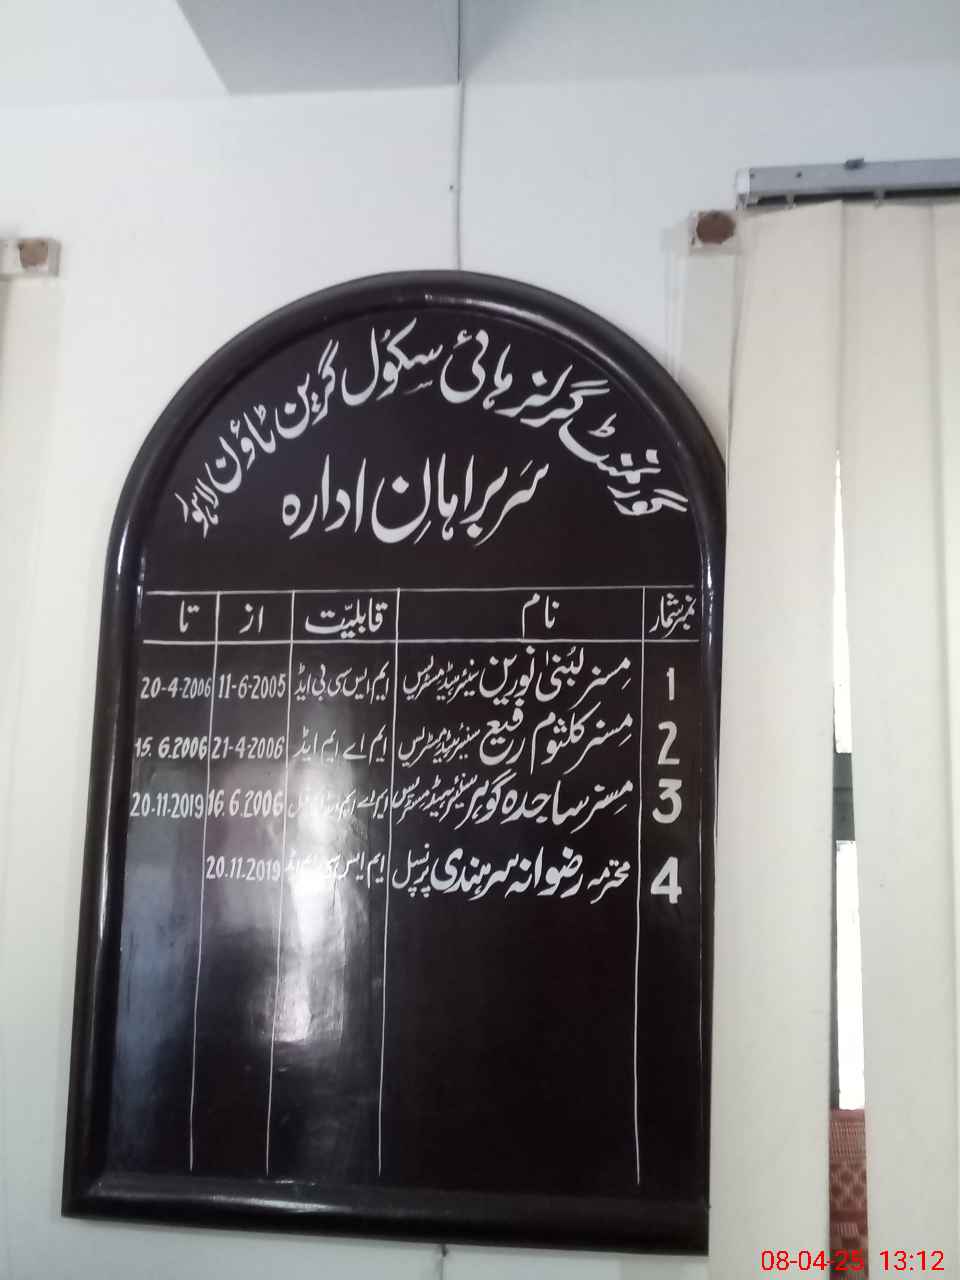 گورنمنٹ گرلز ہائی سکول گرین ٹاؤن لاہور
سربراہانِ ادارہ
نمبرشمار نام قابلیّت از تا
1 مسز لبُنیٰ نورین سینئر ہیڈ مسٹریس ایم ایس سی بی ایڈ 11-6-2005 20-4-2006
2 مسز کلثوم رفیع سینئر ہیڈ مسٹریس ایم اے ایم ایڈ 21-4-2006 15.6.2006
3 مسز ساجدہ گوہر سینئر ہیڈ مسٹریس ایم اے ایم ایڈ 16.6.2006 20-11-2019
4 محترمہ رضوانہ سرہندی پرنسپل ایم ایس سی 20.11.2019
08-04-25 13:12